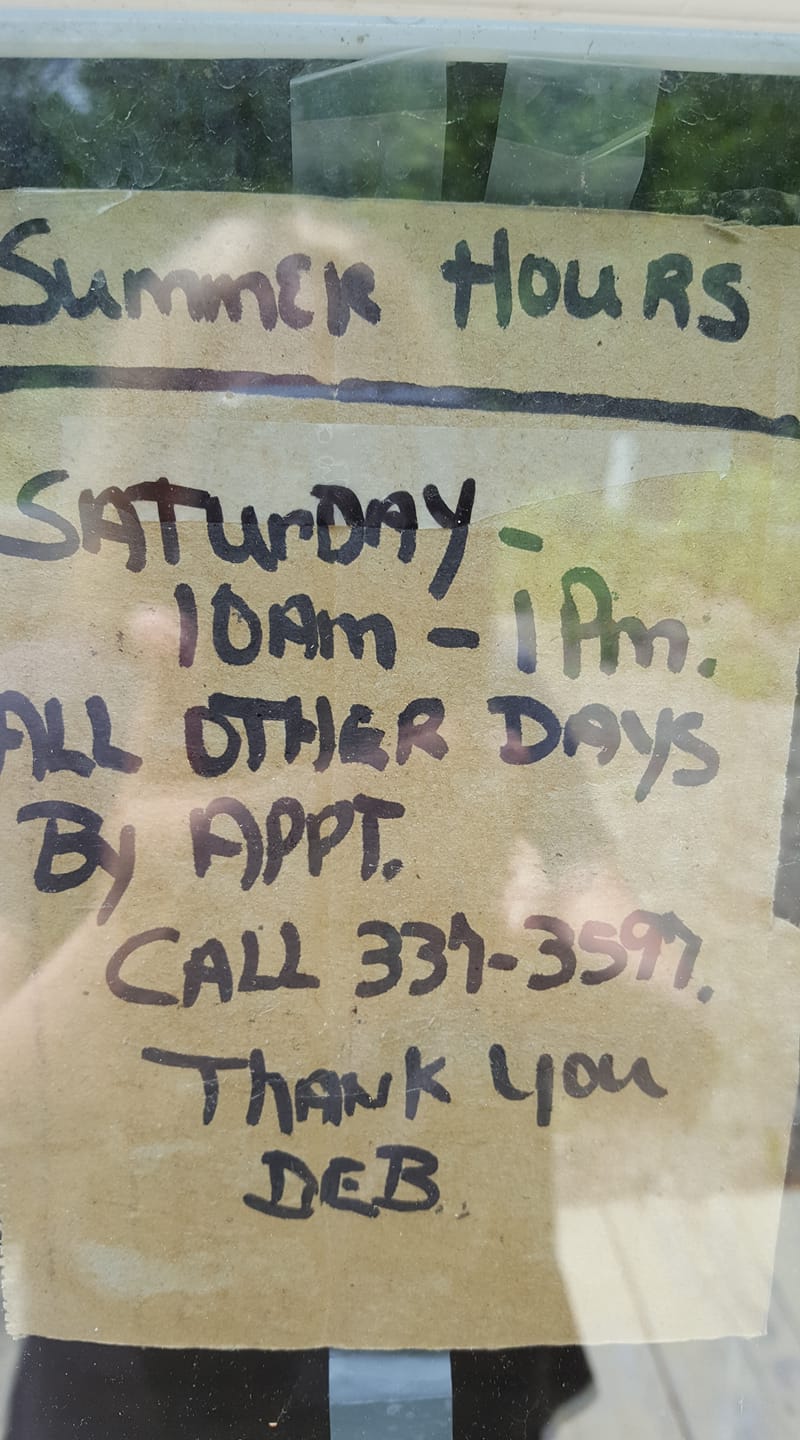 SummER HOURS
SATurDAY -
10Am - 1Pm.
ALL OTHER DAYS
By APPT.
CALL 337-3597.
THANK YOU
DEB.